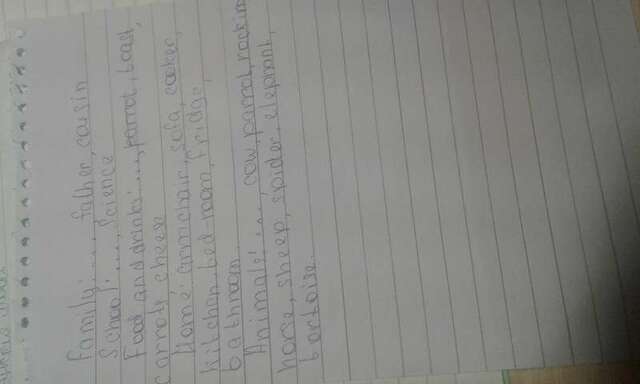 Family: ..., father, cousin
School: ..., Science
Food and drinks: ..., parrot, toast,
carrots, cheese
Home: armchair, sofa, cooker,
kitchen, bed-room, fridge,
bathroom
Animals: ..., cow, parrot, rockin
horse, sheep, spider, elephant,
tortoise.